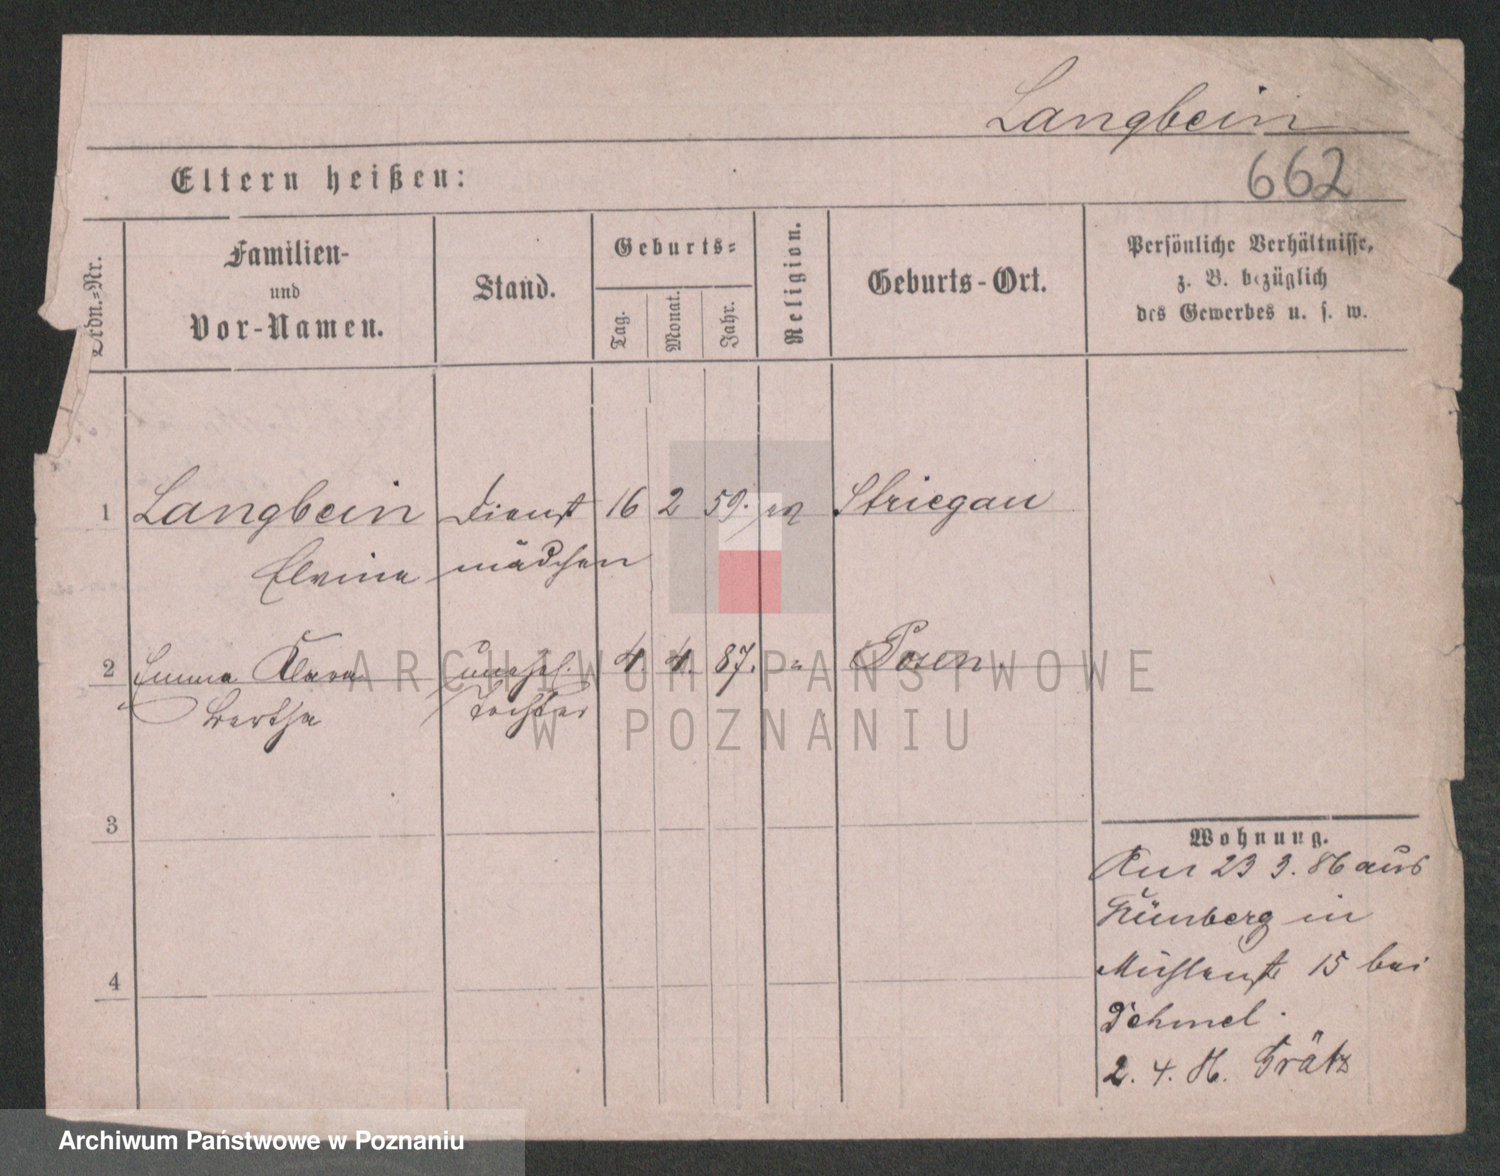 Langbein
662
Eltern heißen:
Ordn.-Nr.
Familien-
und
Vor-Namen.
Stand.
Geburts-
Tag.
Monat.
Jahr.
Religion.
Geburts-Ort.
Persönliche Verhältnisse,
z. B. bezüglich
des Gewerbes u. s. w.
1 Langbein Dienst 16 2 59. ev Striegau
Elvina mädchen
2 Emma Klara unehel. 4 4. 87. " Posen.
Bertha Tochter
3
4
Wohnung.
Am 23 3. 86 aus
Grünberg in
Mühlenst 15 bei
Dehmel.
2. 4. 86. Grätz
ARCHIWUM PAŃSTWOWE
W POZNANIU
Archiwum Państwowe w Poznaniu